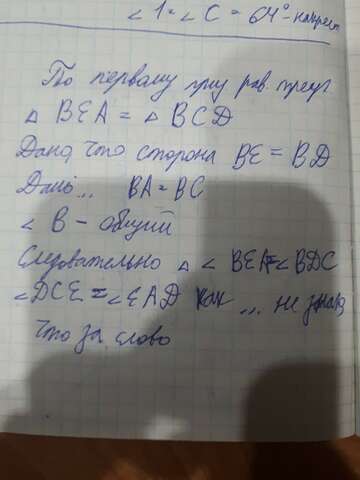 ∠1 = ∠C = 64° - накрест
По первому приз рав. треуг
△ BEA = △ BCD
Дано, что сторона BE = BD
Дано... BA = BC
∠ B - общий
Следовательно △ ∠ BEA = ∠BDC
∠DCE = ∠EAD как ... не знаю
Что за слово